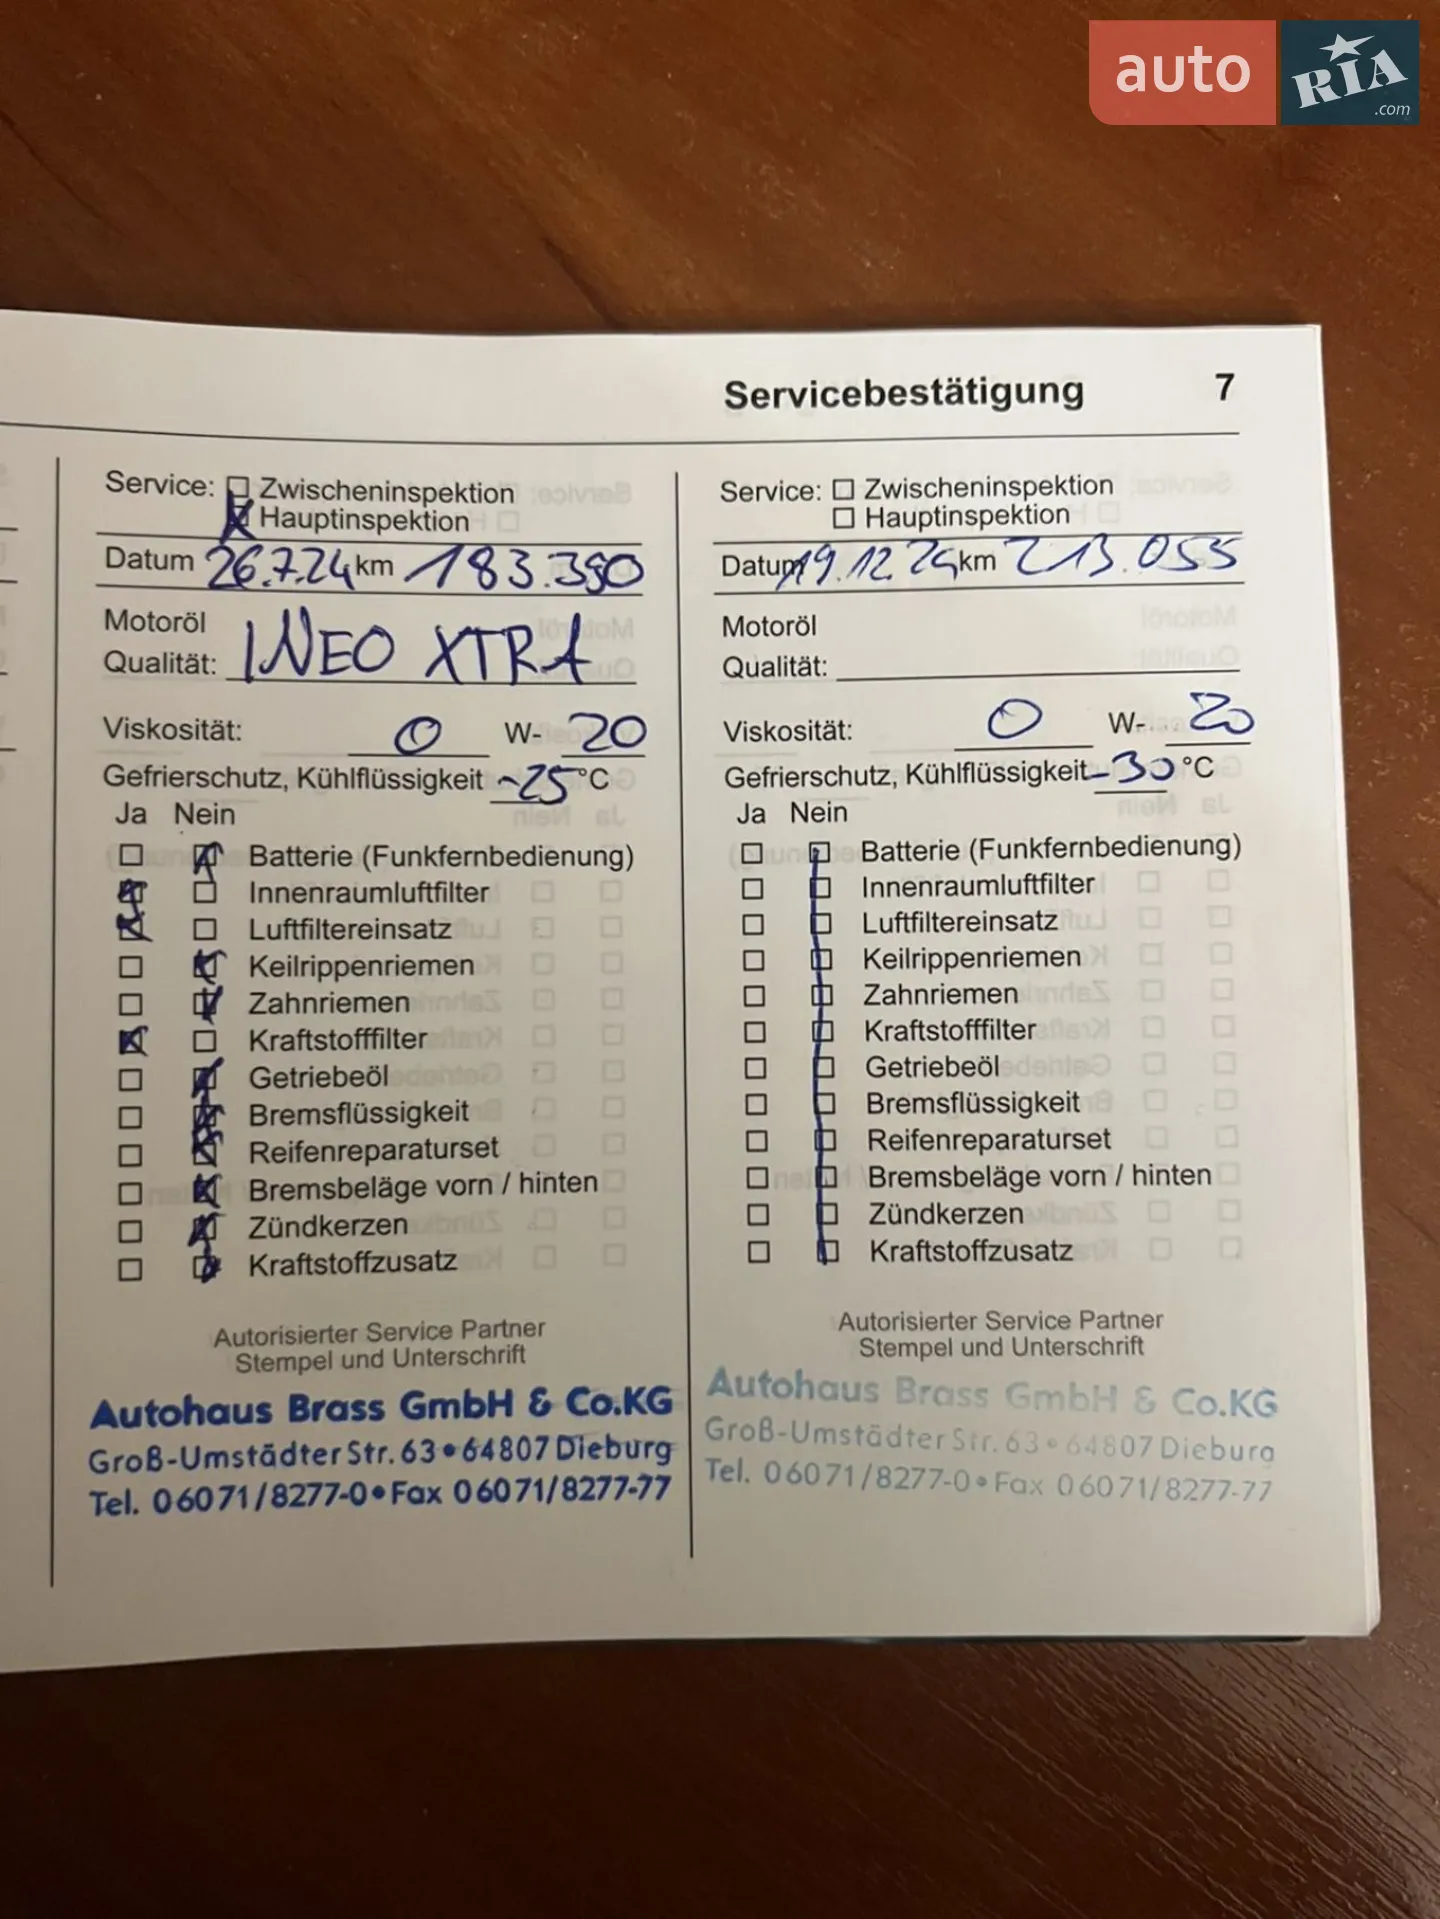 auto RIA .com
Servicebestätigung 7
Service: Zwischeninspektion
Hauptinspektion
Datum 26.7.24 km 183.390
Motoröl
Qualität: INEO XTRA
Viskosität: 0 W- 20
Gefrierschutz, Kühlflüssigkeit -25 °C
Ja Nein
Batterie (Funkfernbedienung)
Innenraumluftfilter
Luftfiltereinsatz
Keilrippenriemen
Zahnriemen
Kraftstofffilter
Getriebeöl
Bremsflüssigkeit
Reifenreparaturset
Bremsbeläge vorn / hinten
Zündkerzen
Kraftstoffzusatz
Autorisierter Service Partner
Stempel und Unterschrift
Autohaus Brass GmbH & Co.KG
Groß-Umstädter Str. 63 • 64807 Dieburg
Tel. 06071/8277-0 • Fax 06071/8277-77
Service: Zwischeninspektion
Hauptinspektion
Datum 19.12.24 km 213.055
Motoröl
Qualität:
Viskosität: 0 W- 20
Gefrierschutz, Kühlflüssigkeit -30 °C
Ja Nein
Batterie (Funkfernbedienung)
Innenraumluftfilter
Luftfiltereinsatz
Keilrippenriemen
Zahnriemen
Kraftstofffilter
Getriebeöl
Bremsflüssigkeit
Reifenreparaturset
Bremsbeläge vorn / hinten
Zündkerzen
Kraftstoffzusatz
Autorisierter Service Partner
Stempel und Unterschrift
Autohaus Brass GmbH & Co.KG
Groß-Umstädter Str. 63 • 64807 Dieburg
Tel. 06071/8277-0 • Fax 06071/8277-77